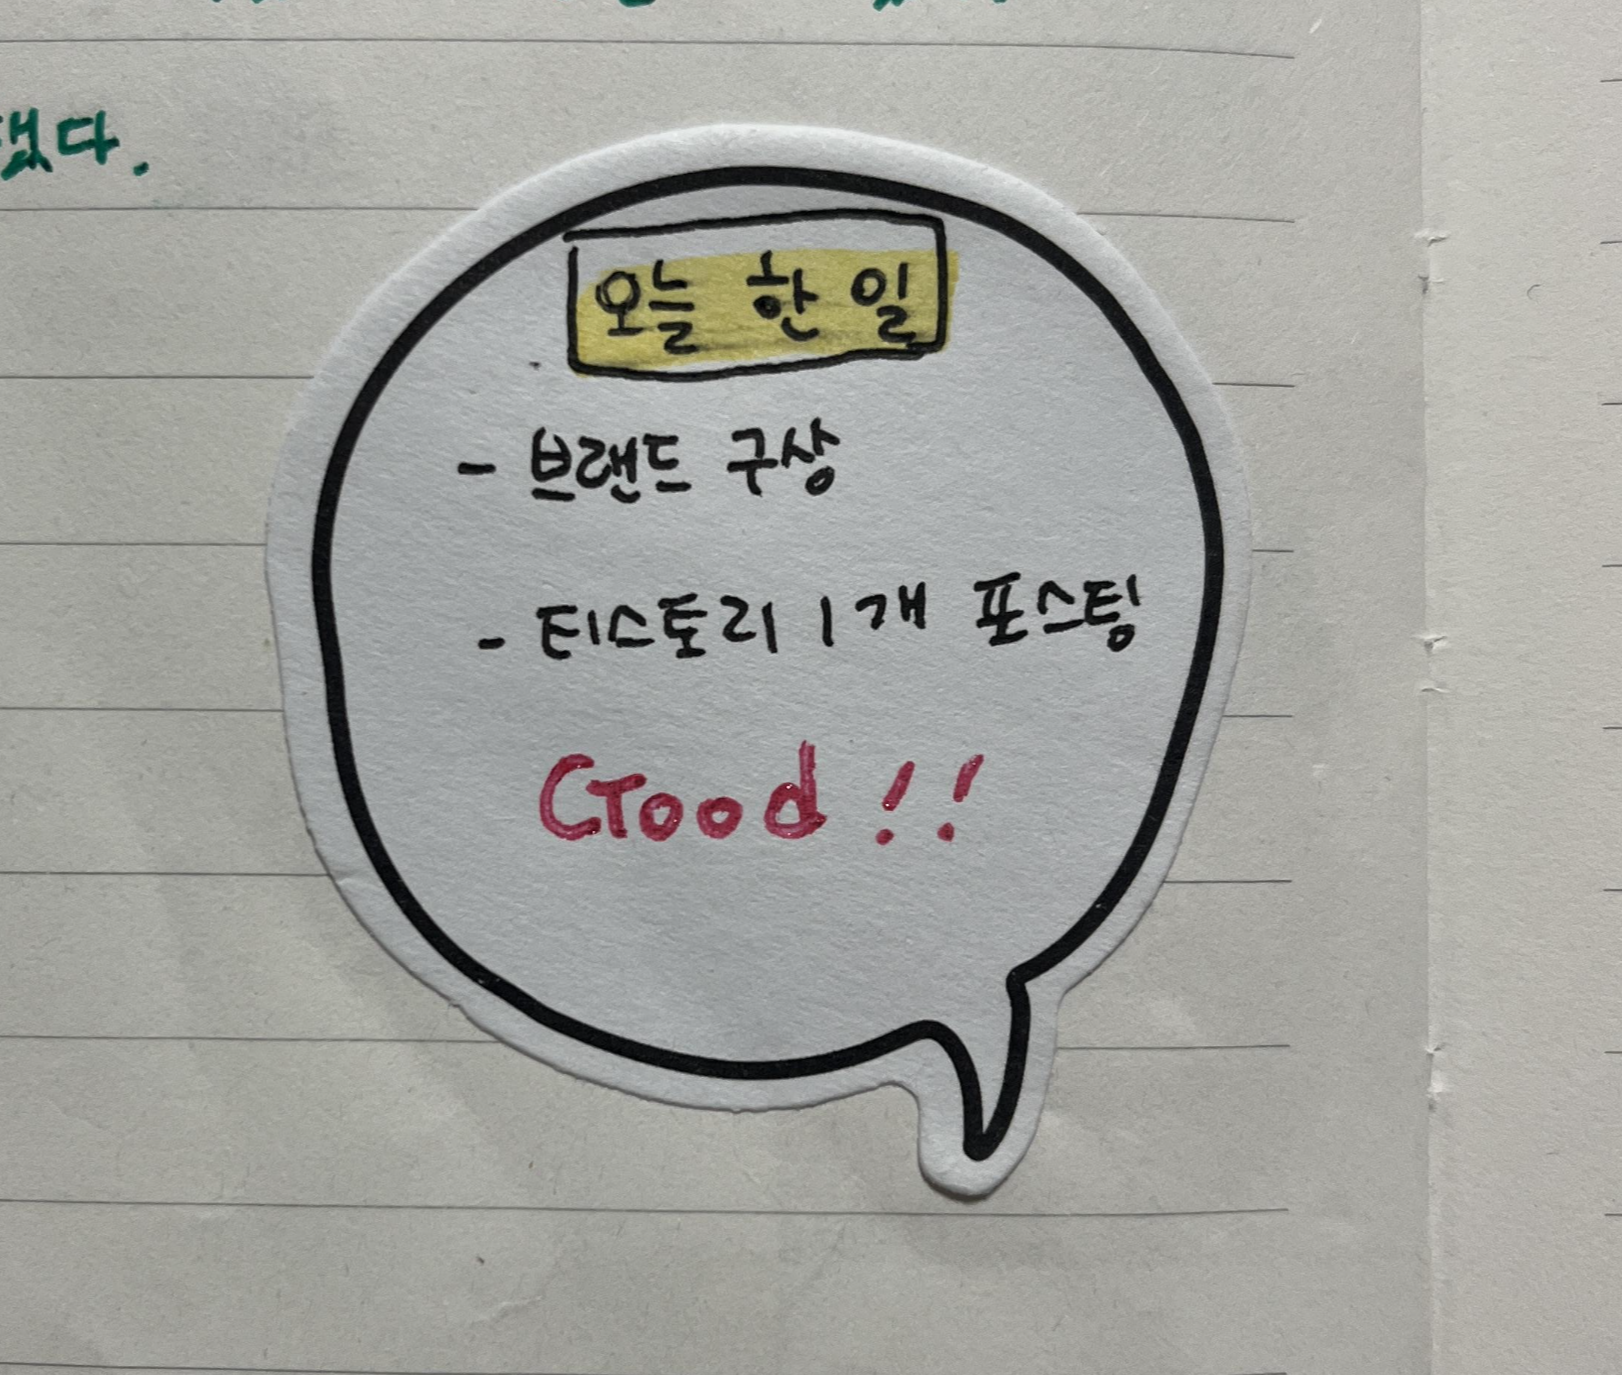 오늘 한 일
- 브랜드 구상
- 티스토리 1개 포스팅
Good!!